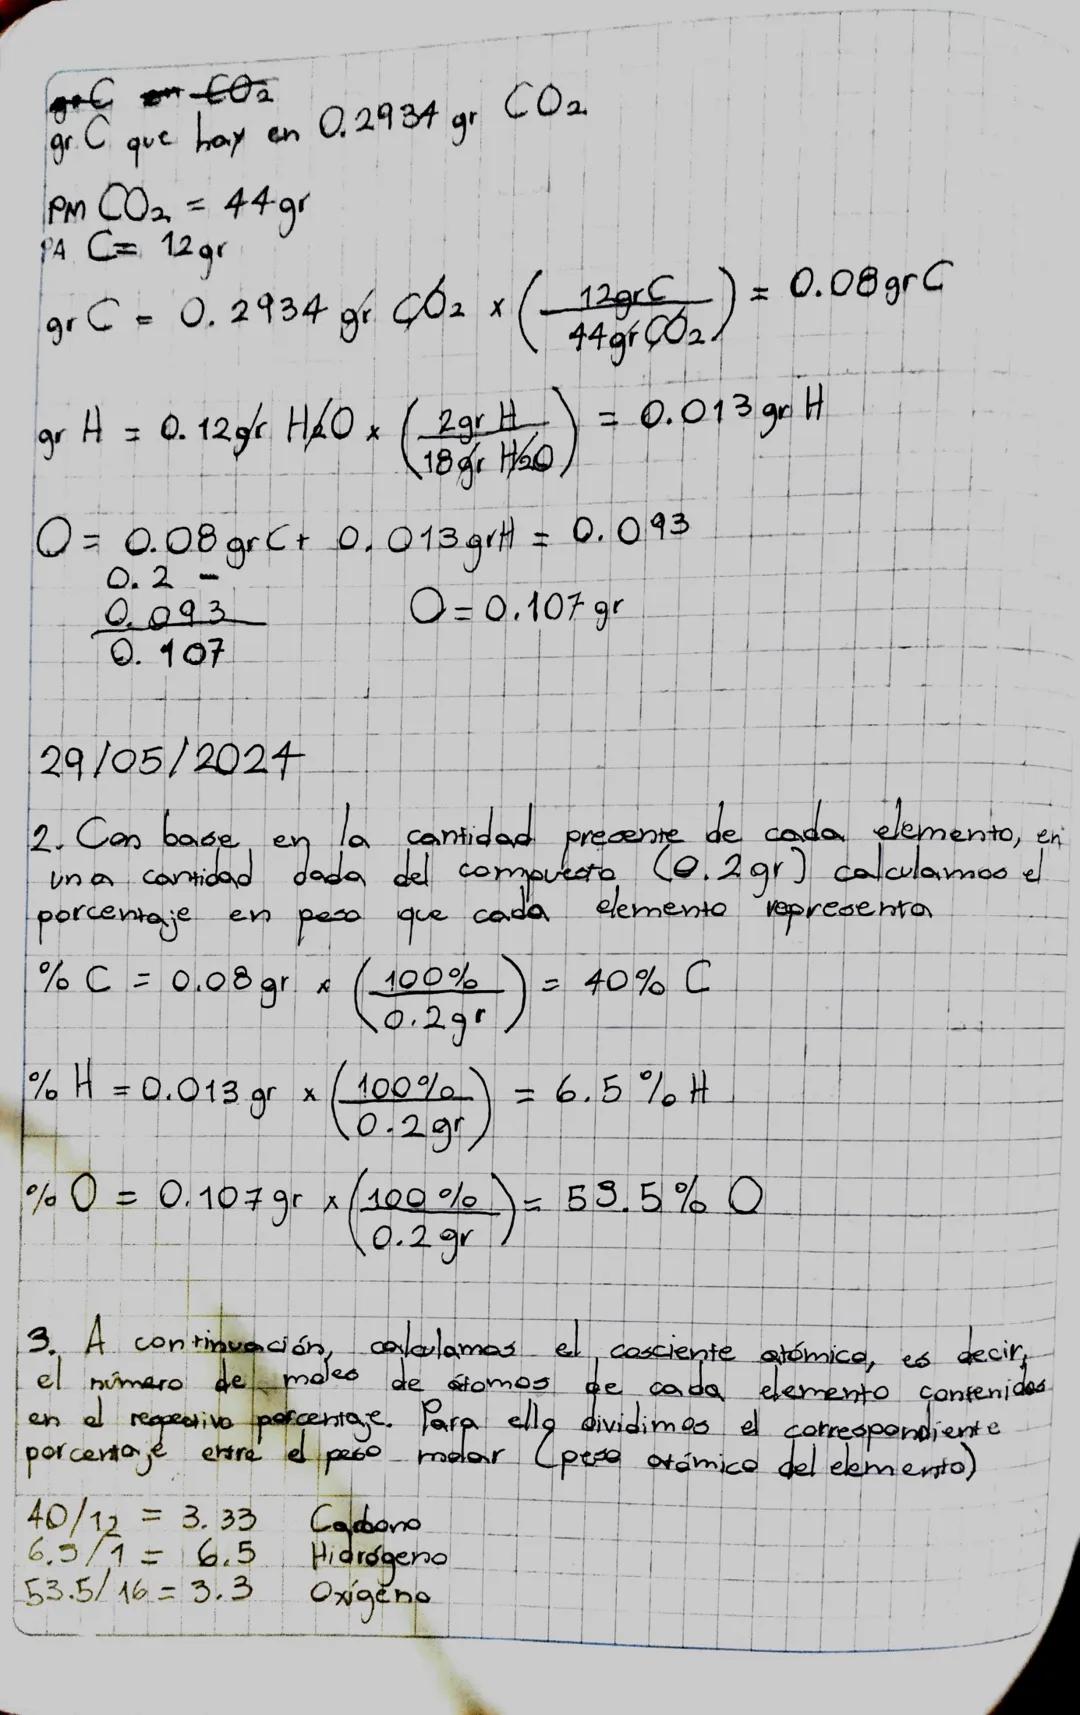 gr C en CO2
gr C que hay en 0.2934 gr CO2
PM CO2 = 44gr
PA C= 12gr
gr C = 0.2934 gr CO2 x (12grC / 44gr CO2) = 0.08grC
gr H = 0.12gr H2O x (2gr H / 18gr H2O) = 0.013gr H
O = 0.08grC+ 0.013grH = 0.093
0.2 -
0.093
0.107
O=0.107gr
29/05/2024
2. Con base en la cantidad presente de cada elemento, en
una cantidad dada del compuesto (0.2gr) calculamos el
porcentaje en peso que cada elemento representa
% C = 0.08gr x (100% / 0.2gr) = 40% C
% H = 0.013gr x (100% / 0.2gr) = 6.5% H
% O = 0.107gr x (100% / 0.2gr) = 53.5% O
3. A continuación, calculamos el cosciente atómico, es decir,
el número de moles de átomos de cada elemento contenidos
en el respectivo porcentaje. Para ello dividimos el correspondiente
porcentaje entre el peso molar (peso atómico del elemento)
40/12 = 3.33 Carbono
6.5/1 = 6.5 Hidrógeno
53.5/16 = 3.3 Oxígeno